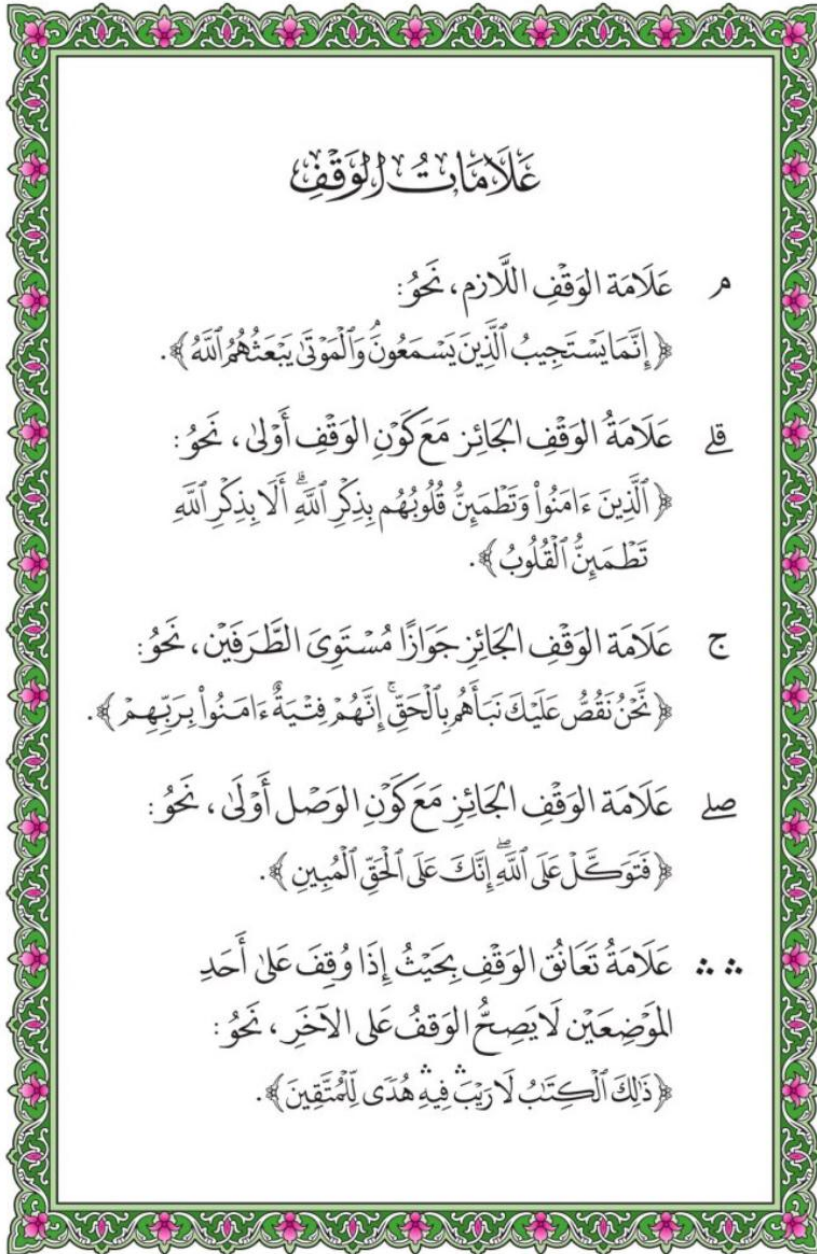 عَلَامَاتُ الوَقْفِ
م عَلَامَة الوَقْفِ اللَّازِم، نَحْوُ:
﴿إِنَّمَا يَسْتَجِيبُ ٱلَّذِينَ يَسْمَعُونَۘ وَٱلْمَوْتَىٰ يَبْعَثُهُمُ ٱللَّهُ﴾.
قلے عَلَامَةُ الوَقْفِ الجَائِز مَعَ كَوْنِ الوَقْفِ أَوْلىٰ، نَحْوُ:
﴿ٱلَّذِينَ ءَامَنُواْ وَتَطْمَئِنُّ قُلُوبُهُم بِذِكْرِ ٱللَّهِۗ أَلَا بِذِكْرِ ٱللَّهِ
تَطْمَئِنُّ ٱلْقُلُوبُ﴾.
ج عَلَامَة الوَقْفِ الجَائِزِ جَوَازًا مُسْتَوِيَ الطَّرَفَيْن، نَحْوُ:
﴿نَّحْنُ نَقُصُّ عَلَيْكَ نَبَأَهُم بِٱلْحَقِّۚ إِنَّهُمْ فِتْيَةٌ ءَامَنُواْ بِرَبِّهِمْ﴾.
صلے عَلَامَة الوَقْفِ الجَائِزِ مَعَ كَوْنِ الوَصْل أَوْلَىٰ، نَحْوُ:
﴿فَتَوَكَّلْ عَلَى ٱللَّهِۖ إِنَّكَ عَلَى ٱلْحَقِّ ٱلْمُبِينِ﴾.
∴ ∴ عَلَامَةُ تَعَانُق الوَقْفِ بِحَيْثُ إِذَا وُقِفَ عَلىٰ أَحَدِ
المَوْضِعَيْن لَا يَصِحُّ الوَقفُ عَلى الآخَرِ، نَحْوُ:
﴿ذَٰلِكَ ٱلْكِتَٰبُ لَا رَيْبَۛ فِيهِۛ هُدًى لِّلْمُتَّقِينَ﴾.